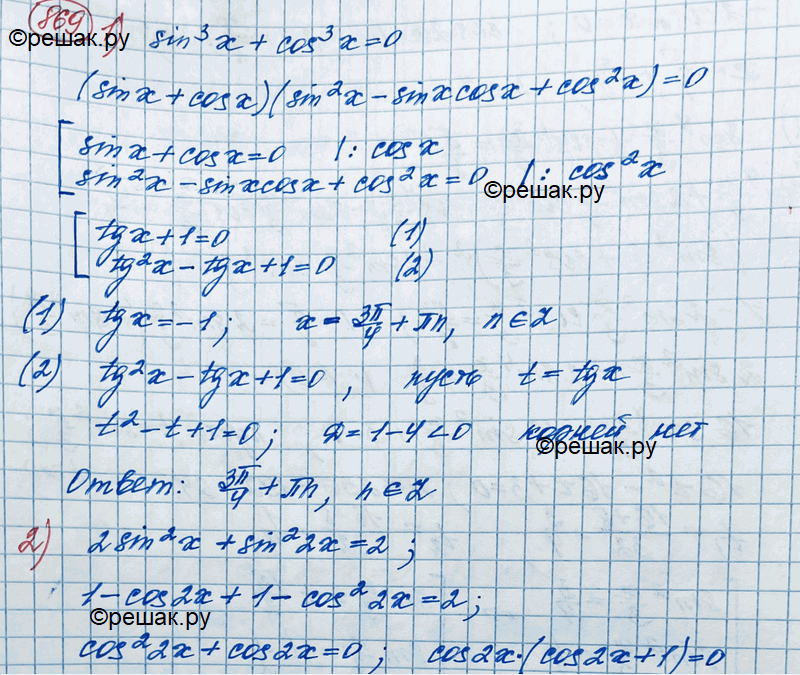 869
©решак.ру
1) sin³x + cos³x = 0
(sinx + cosx)(sin²x - sinxcosx + cos²x) = 0
[ sinx + cosx = 0 | : cosx
sin²x - sinxcosx + cos²x = 0 | : cos²x
©решак.ру
[ tgx + 1 = 0 (1)
tg²x - tgx + 1 = 0 (2)
(1) tgx = -1; x = 3π/4 + πn, n ∈ Z
(2) tg²x - tgx + 1 = 0, пусть t = tgx
t² - t + 1 = 0; D = 1 - 4 < 0 корней нет
©решак.ру
Ответ: 3π/4 + πn, n ∈ Z
2) 2sin²x + sin²2x = 2;
1 - cos2x + 1 - cos²2x = 2;
©решак.ру
cos²2x + cos2x = 0; cos2x·(cos2x + 1) = 0